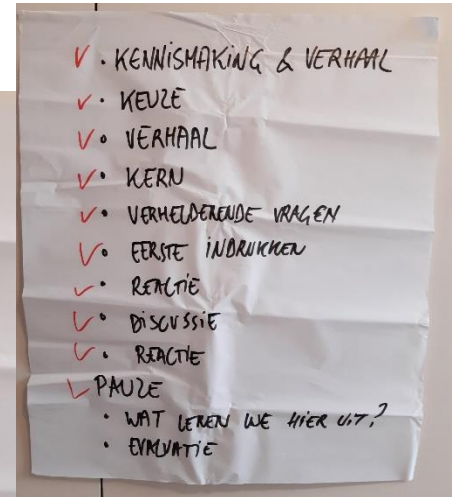 ✓ • KENNISMAKING & VERHAAL
✓ • KEUZE
✓ • VERHAAL
✓ • KERN
✓ • VERHELDERENDE VRAGEN
✓ • EERSTE INDRUKKEN
✓ • REACTIE
✓ • DISCUSSIE
✓ • REACTIE
✓ PAUZE
• WAT LEREN WE HIER UIT?
• EVALUATIE